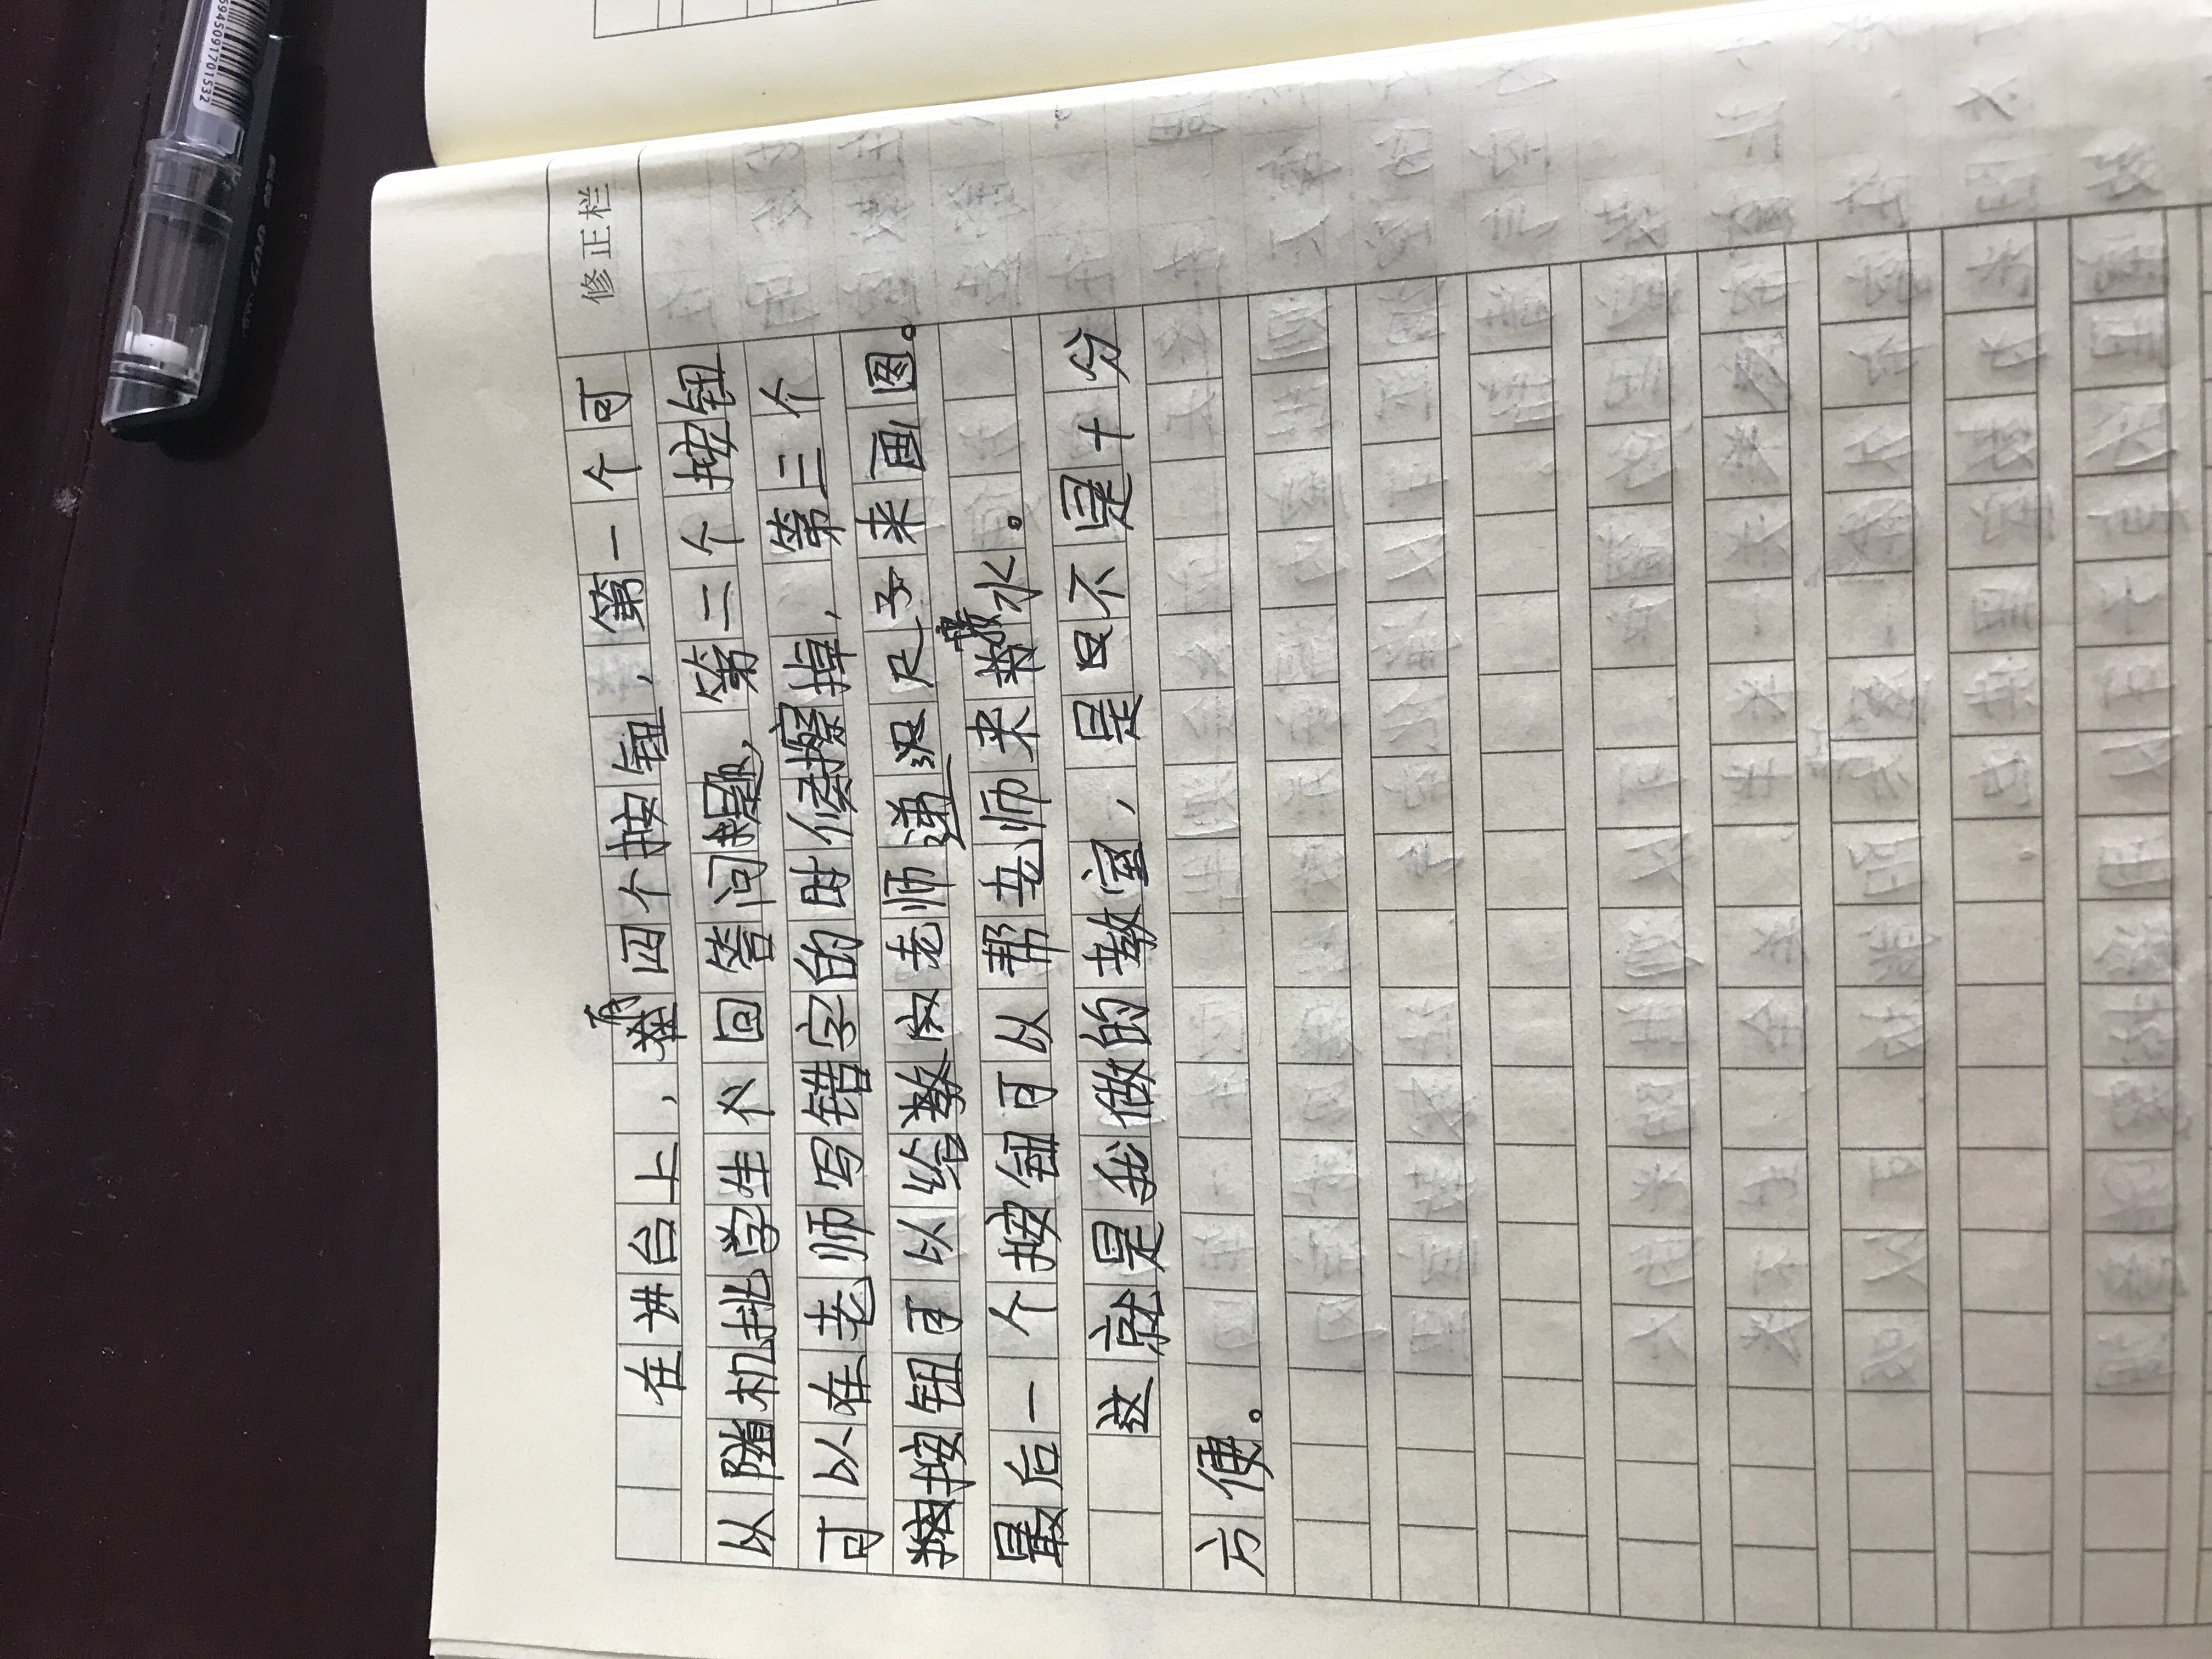 修正栏
在讲台上，有四个按钮，第一个可
以随机挑学生个回答问题，第二个按钮
可以在老师写错字的时候擦掉，第三个
按钮可以给数学老师递尺子来画图。
最后一个按钮可以帮老师来接水。
这就是我做的教室，是只不是十份
方便。
6945091701532